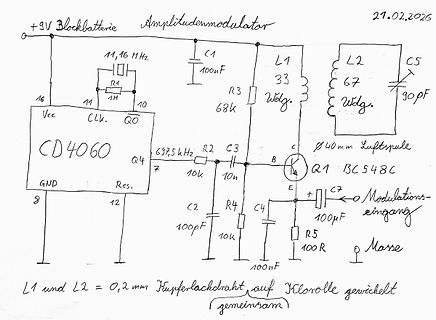 Amplitudenmodulator
21.02.2026
+9V Blockbatterie
11,16 MHz
R1
1M
C1
100nF
R3
68k
L1
33
Wdg.
L2
67
Wdg.
C5
90pF
16
11
10
Vcc
Clk.
Q0
CD4060
Q4
7
697,5 kHz
R2
10k
C3
10n
B
C
E
Ø 40mm Luftspule
Q1 BC548C
GND
Res.
8
12
C2
100pF
R4
10k
C4
100nF
C7
100µF
R5
100R
Modulations-
eingang
Masse
L1 und L2 = 0,2mm Kupferlackdraht auf Klorolle gewickelt
gemeinsam